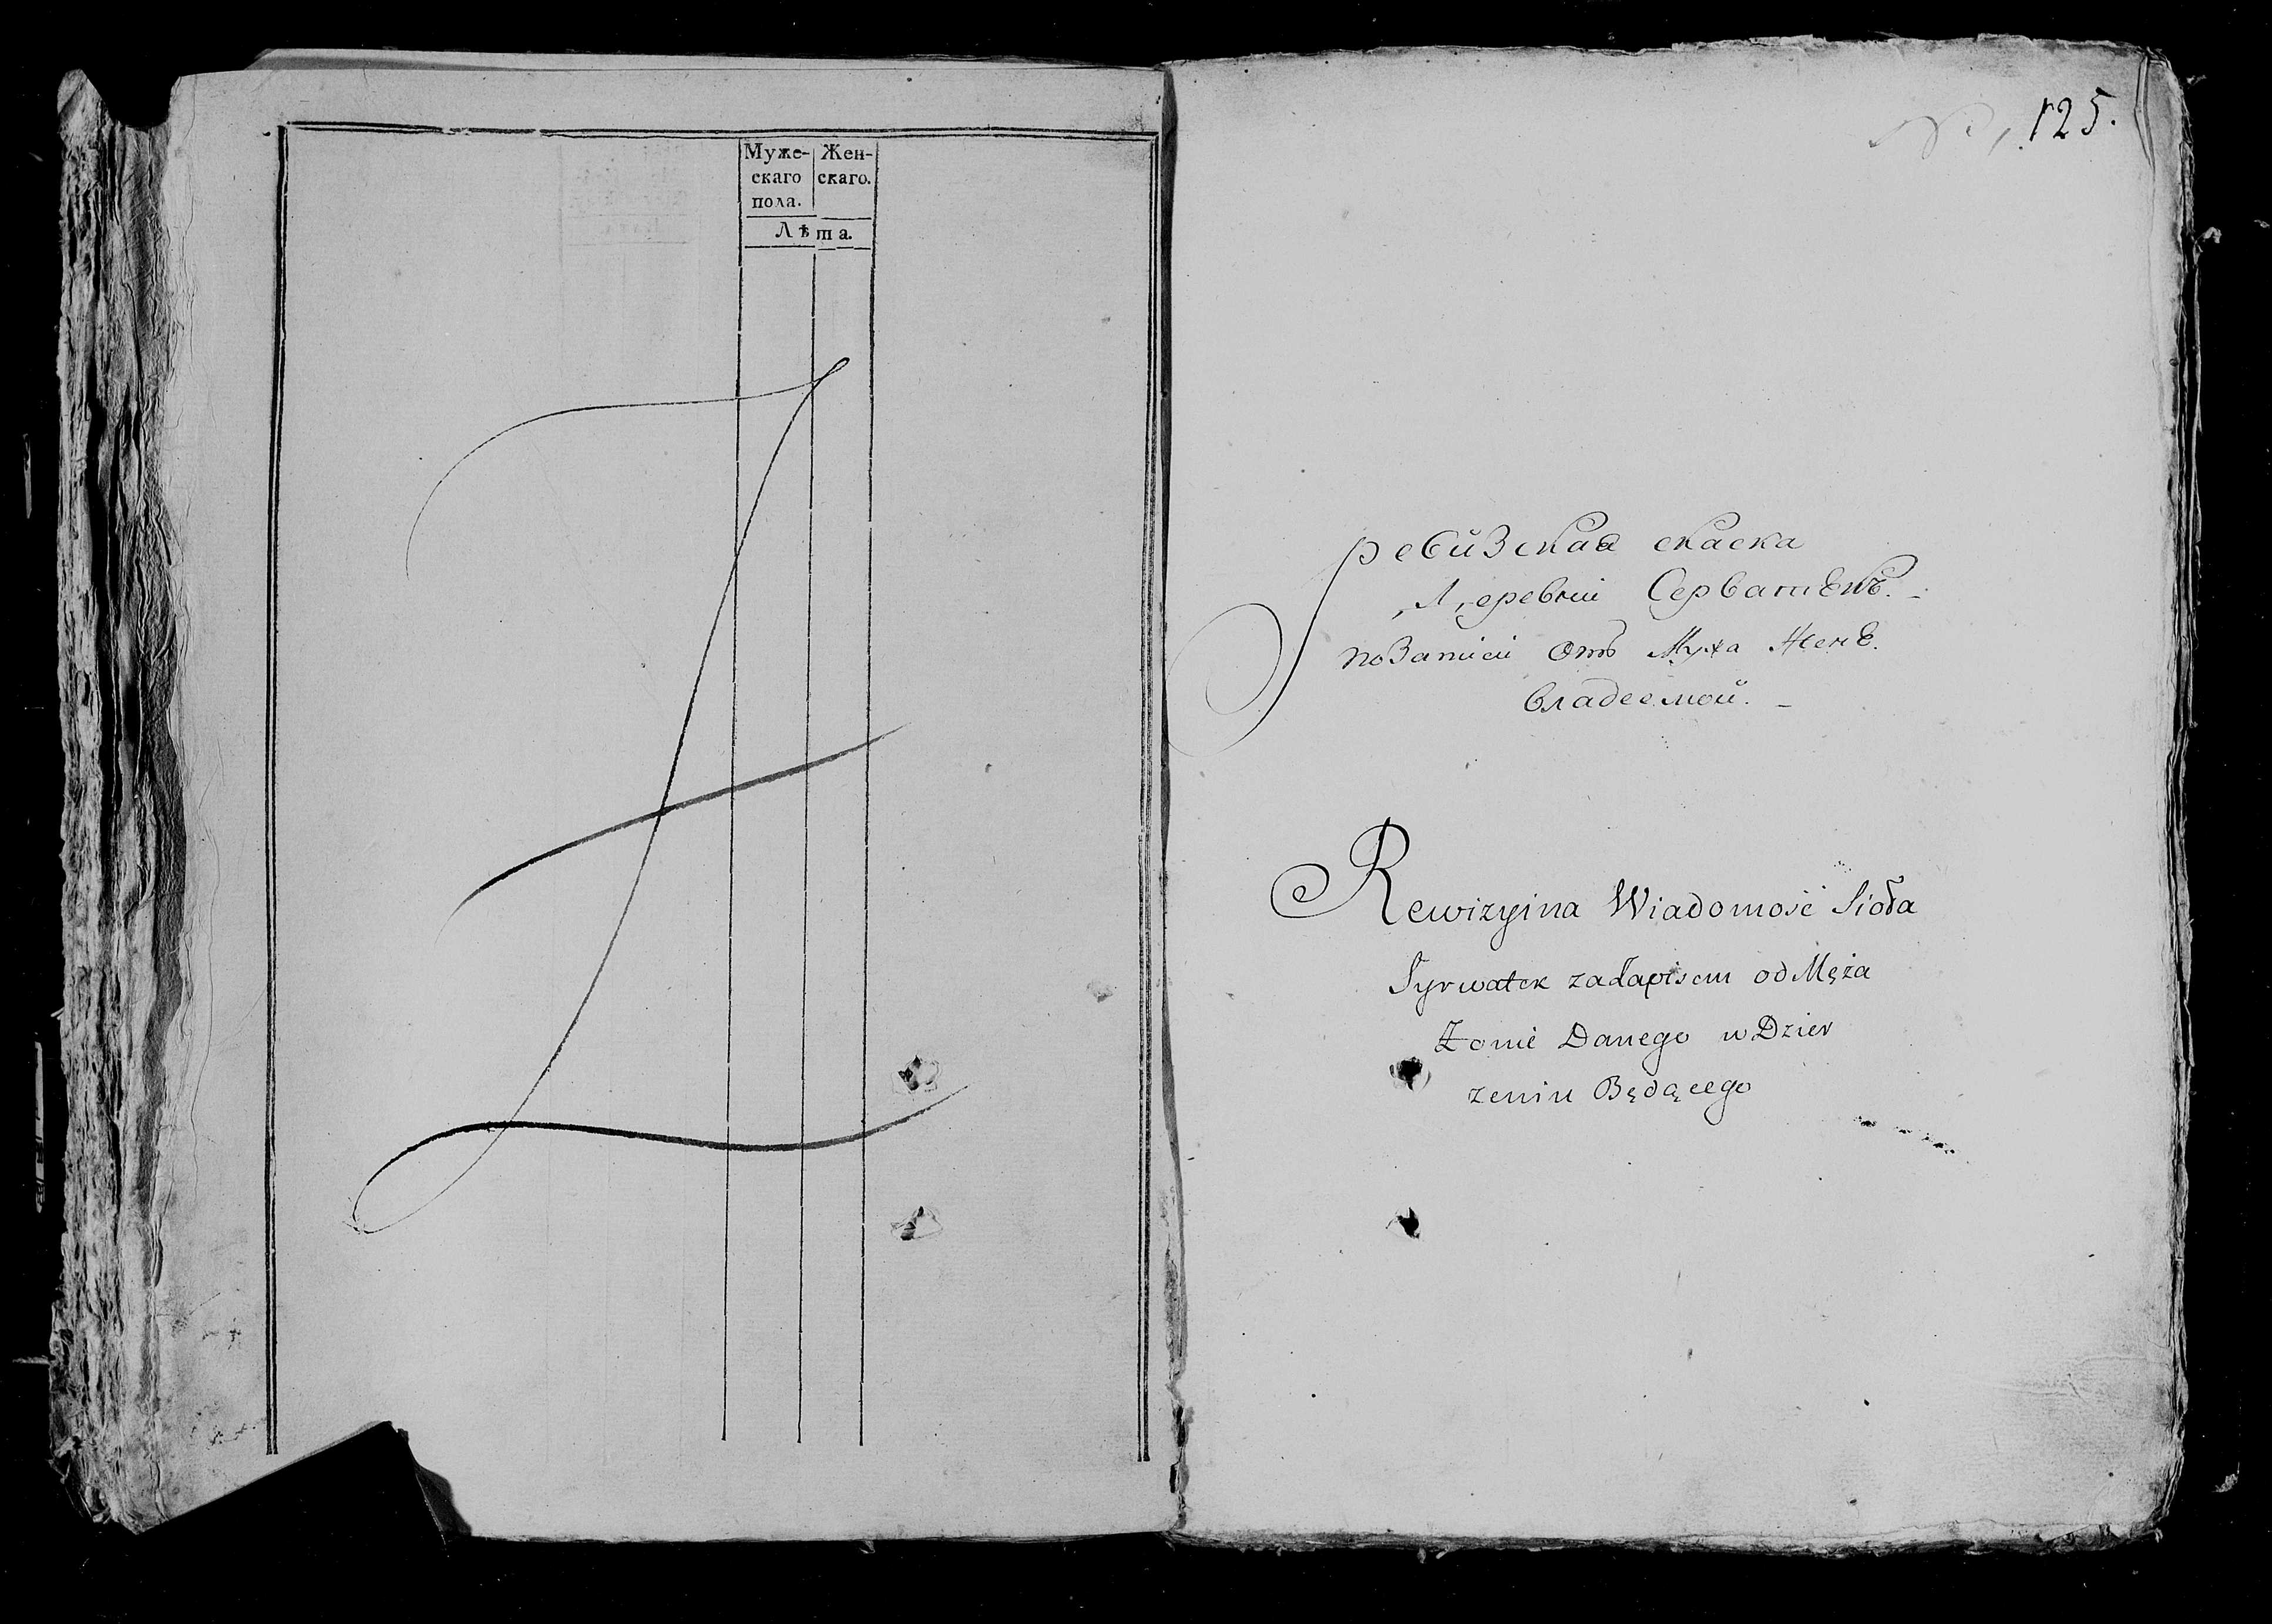 Муже- Жен-
скаго скаго.
пола.
Лѣта.
№ 125.
ревизская скаска
Деревни Серватекъ.
позаписи отъ Мужа Жене.
владеемой.
Rewizyina Wiadomość Sioła
Syrwatek zadapisem od Męża
Żonie Danego w Dzier
zeniu Będącego